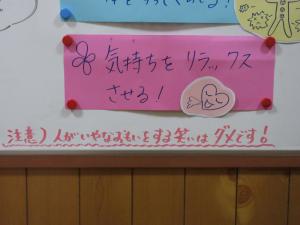 気持ちを リラックス
させる!
注意)人がいやなおもいをする笑いはダメです!